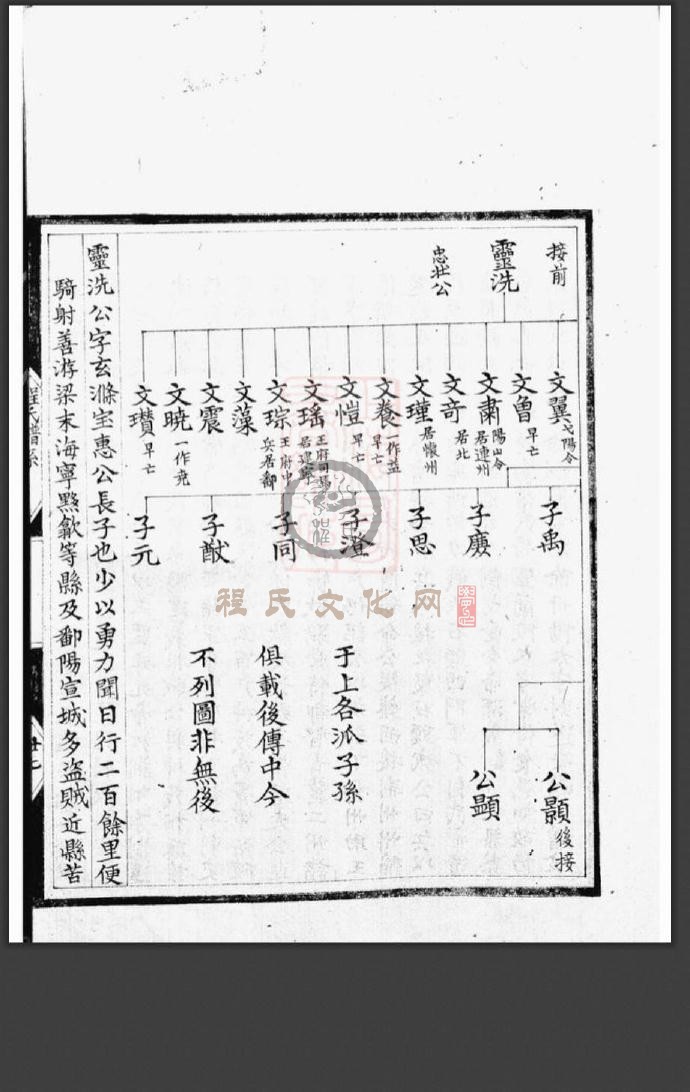 接前
靈洗
忠壯公
文翼 弋陽令
文曾 早亡
文肅 陽山令 居連州
文奇 居北
文瑾 居懷州
文養 一作益 早亡
文愷 早亡
文瑤 王府司馬
文琮 王府中兵居鄱
文藻
文震
文曉 一作尭
文瓚 早亡
子禹
子慶
子思
子澄
子同
子猷
子元
程氏文化网
于上各派子孫
俱載後傳中今
不列圖非無後
公顥 後接
公顕
靈洗公字玄滌宝惠公長子也少以勇力聞日行二百餘里便
騎射善游梁末海寧黟歙等縣及鄱陽宣城多盜賊近縣苦
程氏譜系